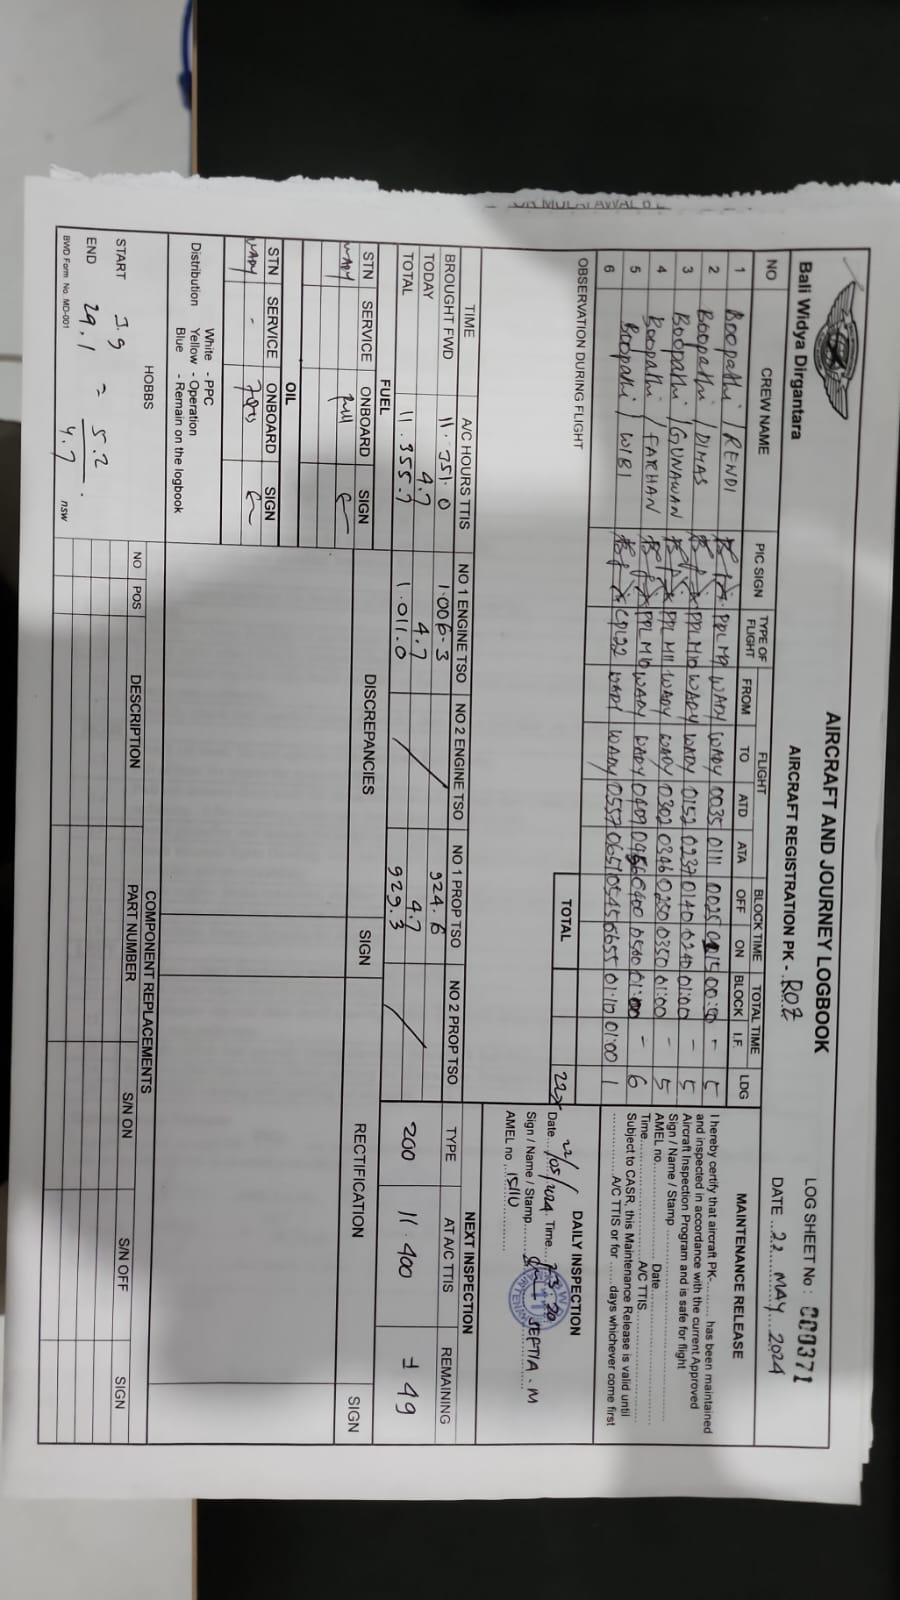 Bali Widya Dirgantara
AIRCRAFT AND JOURNEY LOGBOOK
AIRCRAFT REGISTRATION PK - ROZ
LOG SHEET No : 000371
DATE 22 MAY 2024
NO CREW NAME PIC SIGN TYPE OF FLIGHT FLIGHT BLOCK TIME TOTAL TIME LDG
FROM TO ATD ATA OFF ON BLOCK I.F.
1 Boopathi / RENDI PPL M9 WADY WADY 0035 0111 0025 0115 00:50 - 5
2 Boopathi / DIMAS PPL M10 WADY WADY 0152 0237 0140 0240 01:00 - 5
3 Boopathi / GUNAWAN PPL M11 WADY WADY 0302 0346 0250 0350 01:00 - 5
4 Boopathi / FARHAN PPL M10 WADY WADY 0409 0456 0400 0500 01:00 - 6
5 Boopathi / WIBI CPL22 WADY WADY 0557 0651 0545 0655 01:10 01:00 1
6
TOTAL 22x
OBSERVATION DURING FLIGHT
MAINTENANCE RELEASE
I hereby certify that aircraft PK-.......... has been maintained
and inspected in accordance with the current Approved
Aircraft Inspection Program and is safe for flight
Sign / Name / Stamp
AMEL no Date
Time A/C TTIS
Subject to CASR, this Maintenance Release is valid until
A/C TTIS or for ...... days whichever come first
DAILY INSPECTION
Date 22/05/2024 Time 23:20
Sign / Name / Stamp SEPTIA . M
AMEL no 15110
TIME A/C HOURS TTIS NO 1 ENGINE TSO NO 2 ENGINE TSO NO 1 PROP TSO NO 2 PROP TSO
BROUGHT FWD 11.351.0 1.006.3 924.6
TODAY 4.7 4.7 4.7
TOTAL 11.355.7 1.011.0 929.3
NEXT INSPECTION
TYPE AT A/C TTIS REMAINING
200 11.400 ± 49
FUEL
STN SERVICE ONBOARD SIGN
WADY full
OIL
STN SERVICE ONBOARD SIGN
WADY -
DISCREPANCIES SIGN RECTIFICATION SIGN
Distribution White - PPC
Yellow - Operation
Blue - Remain on the logbook
COMPONENT REPLACEMENTS
NO POS DESCRIPTION PART NUMBER S/N ON S/N OFF SIGN
HOBBS
START
END 29.1 = 5.2
4.7
BWD Form No. MD-001
nsw